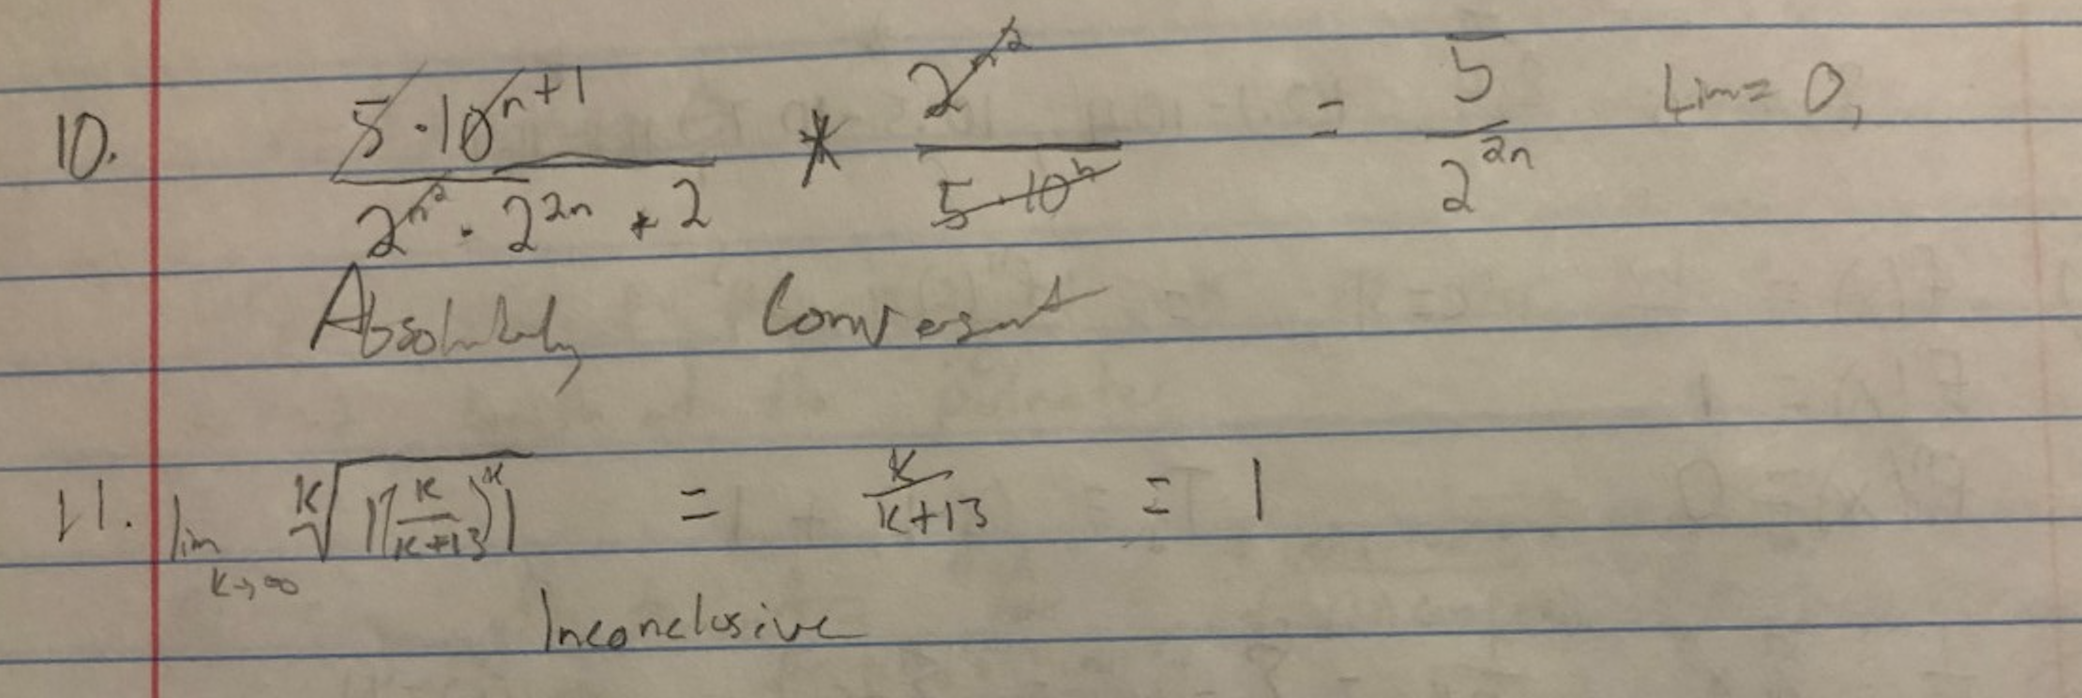 10. 5·10^{n+1} / 2^{n^2} · 2^{2n} * 2 * 2^{n^2} / 5·10^n = 5 / 2^{2n} Lim = 0,
Absolutely Convergent
11. lim k→∞ ᵏ√|(k/(k+13))^k| = k/(k+13) = 1
Inconclusive